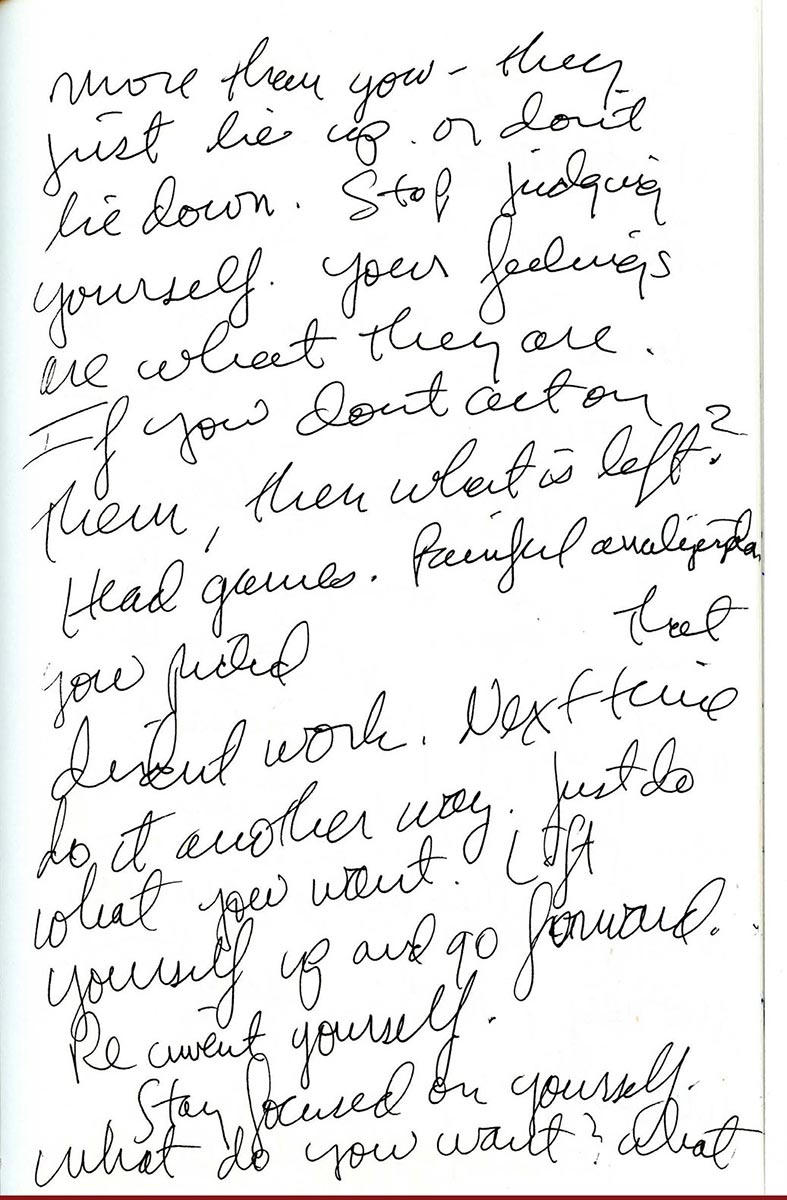 more than you – they
just lie up. or don't
lie down. Stop judging
yourself. your feelings
are what they are.
If you don't act on
them, then what is left?
Head games. Painful
that
you picked
didn't work. Next time
do it another way. Just do
what you want. Lift
yourself up and go forward.
Re invent yourself.
Stay focused on yourself.
What do you want? What